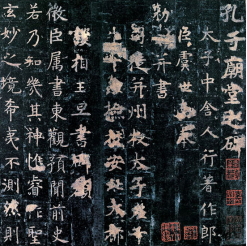 孔子廟堂之碑
太子中舍人行著作郎
臣虞世南奉
勅撰并書
司徒并州牧太子左千
牛率兼檢校安北大都
護相王旦書碑額
微臣屬書東觀預聞前史
若乃知幾其神惟睿作聖
玄妙之境希夷不測然則